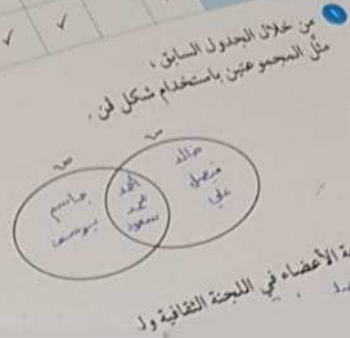 ١ من خلال الجدول السابق ،
مثّل المجموعتين باستخدام شكل ڤن .
س
خالد
فيصل
علي
أحمد
محمد
سعود
جاسم
يوسف
ة الأعضاء في اللجنة الثقافية ولـ